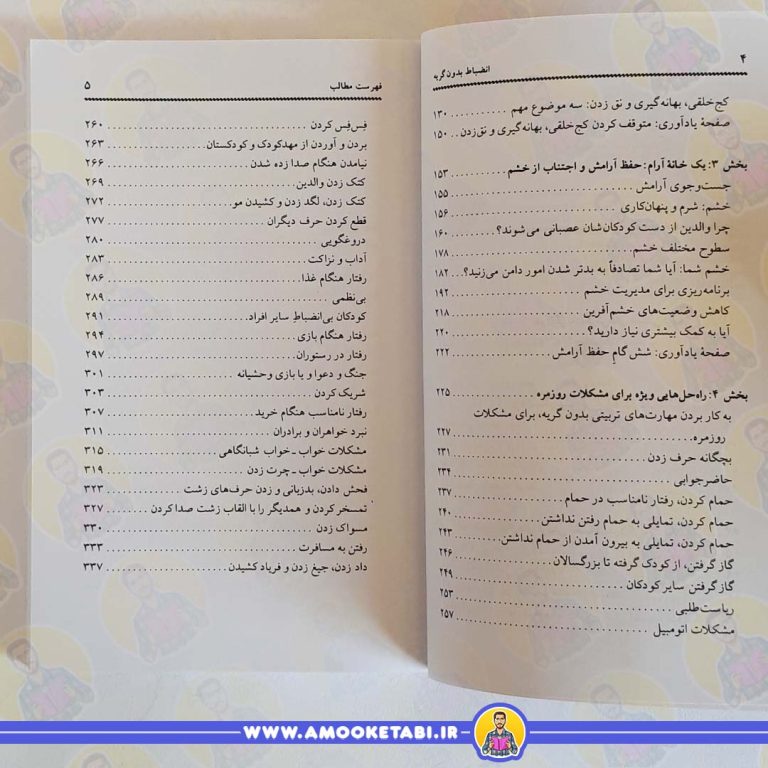 ۴
انضباط بدون گریه
کج‌خلقی، بهانه‌گیری و نق زدن: سه موضوع مهم ۱۳۰
صفحهٔ یادآوری: متوقف کردن کج‌خلقی، بهانه‌گیری و نق‌زدن ۱۵۰
بخش ۳: یک خانهٔ آرام: حفظ آرامش و اجتناب از خشم ۱۵۳
جست‌وجوی آرامش ۱۵۵
خشم: شرم و پنهان‌کاری ۱۵۶
چرا والدین از دست کودکان‌شان عصبانی می‌شوند؟ ۱۶۰
سطوح مختلف خشم ۱۷۸
خشم شما: آیا شما تصادفاً به بدتر شدن امور دامن می‌زنید؟ ۱۸۲
برنامه‌ریزی برای مدیریت خشم ۱۹۲
کاهش وضعیت‌های خشم‌آفرین ۲۱۸
آیا به کمک بیشتری نیاز دارید؟ ۲۲۰
صفحهٔ یادآوری: شش گام حفظ آرامش ۲۲۲
بخش ۴: راه‌حل‌هایی ویژه برای مشکلات روزمره ۲۲۵
به کار بردن مهارت‌های تربیتی بدون گریه، برای مشکلات
روزمره ۲۲۷
بچگانه حرف زدن ۲۳۱
حاضرجوابی ۲۳۴
حمام کردن، رفتار نامناسب در حمام ۲۳۷
حمام کردن، تمایلی به حمام رفتن نداشتن ۲۴۰
حمام کردن، تمایلی به بیرون آمدن از حمام نداشتن ۲۴۳
گاز گرفتن، از کودک گرفته تا بزرگسالان ۲۴۶
گاز گرفتن سایر کودکان ۲۴۹
ریاست‌طلبی ۲۵۳
مشکلات اتومبیل ۲۵۷
فهرست مطالب ۵
فِس‌فِس کردن ۲۶۰
بردن و آوردن از مهدکودک و کودکستان ۲۶۳
نیامدن هنگام صدا زده شدن ۲۶۶
کتک زدن والدین ۲۶۹
کتک زدن، لگد زدن و کشیدن مو ۲۷۲
قطع کردن حرف دیگران ۲۷۷
دروغگویی ۲۸۰
آداب و نزاکت ۲۸۳
رفتار هنگام غذا ۲۸۶
بی‌نظمی ۲۸۹
کودکان بی‌انضباطِ سایر افراد ۲۹۱
رفتار هنگام بازی ۲۹۴
رفتار در رستوران ۲۹۷
جنگ و دعوا و یا بازی وحشیانه ۳۰۱
شریک کردن ۳۰۳
رفتار نامناسب هنگام خرید ۳۰۷
نبرد خواهران و برادران ۳۱۱
مشکلات خواب ـ خواب شبانگاهی ۳۱۵
مشکلات خواب ـ چرت زدن ۳۱۹
فحش دادن، بدزبانی و زدن حرف‌های زشت ۳۲۳
تمسخر کردن و همدیگر را با القاب زشت صدا کردن ۳۲۷
مسواک زدن ۳۳۰
رفتن به مسافرت ۳۳۳
داد زدن، جیغ زدن و فریاد کشیدن ۳۳۷
WWW.AMOOKETABI.IR